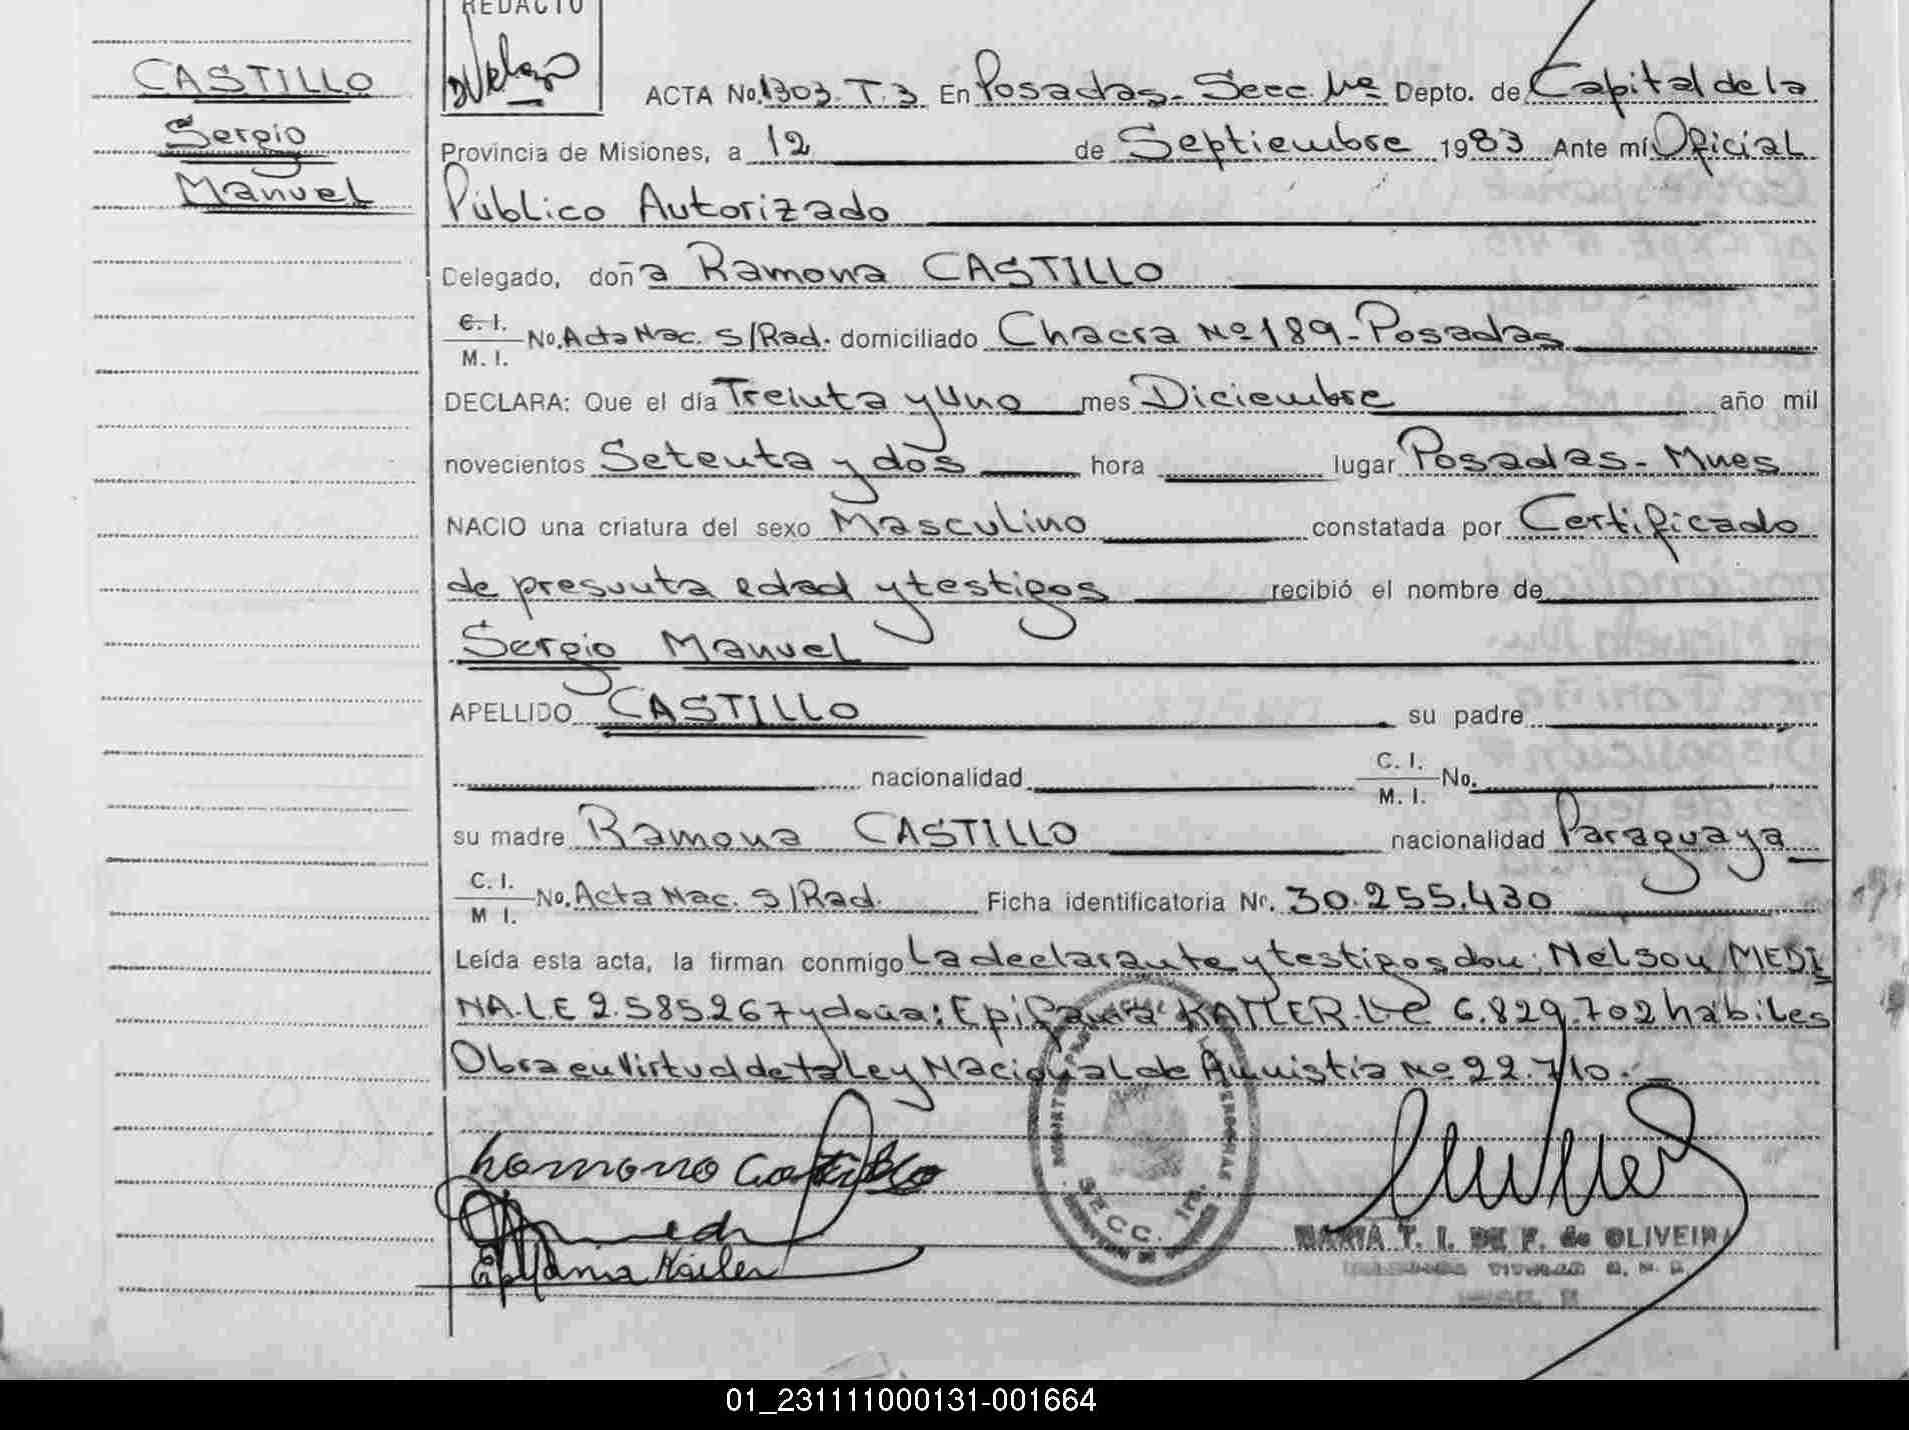 REDACTO
CASTILLO
Sergio
Manuel
ACTA No. 1303. T. 3 En Posadas - Secc. 1ra Depto. de Capital de la
Provincia de Misiones, a 12 de Septiembre 1983 Ante mí Oficial
Público Autorizado
Delegado, doña Ramona CASTILLO
C. I. / M. I. No. Acta Nac. S/Rad. domiciliado Chacra Nº 189 - Posadas
DECLARA: Que el día Treinta y Uno mes Diciembre año mil
novecientos Setenta y dós hora lugar Posadas - Mnes
NACIO una criatura del sexo Masculino constatada por Certificado
de presunta edad y testigos recibió el nombre de
Sergio Manuel
APELLIDO CASTILLO su padre
nacionalidad C. I. / M. I. No.
su madre Ramona CASTILLO nacionalidad Paraguaya
C. I. / M I. No. Acta Nac. S/Rad. Ficha identificatoria Nr. 30.255.430
Leída esta acta, la firman conmigo La declarante y testigos don: Nelson MEDI
NA. L E 2.585.267 y doña: Epifania KAILER. L e 6.829.702 hábiles
Obra en Virtud de la Ley Nacional de Amnistia Nº 22.710.-
Ramona Castillo
Epifania Kailer
SECC. 1ra.
MARIA T. I. DE F. de OLIVEIRA
01_231111000131-001664